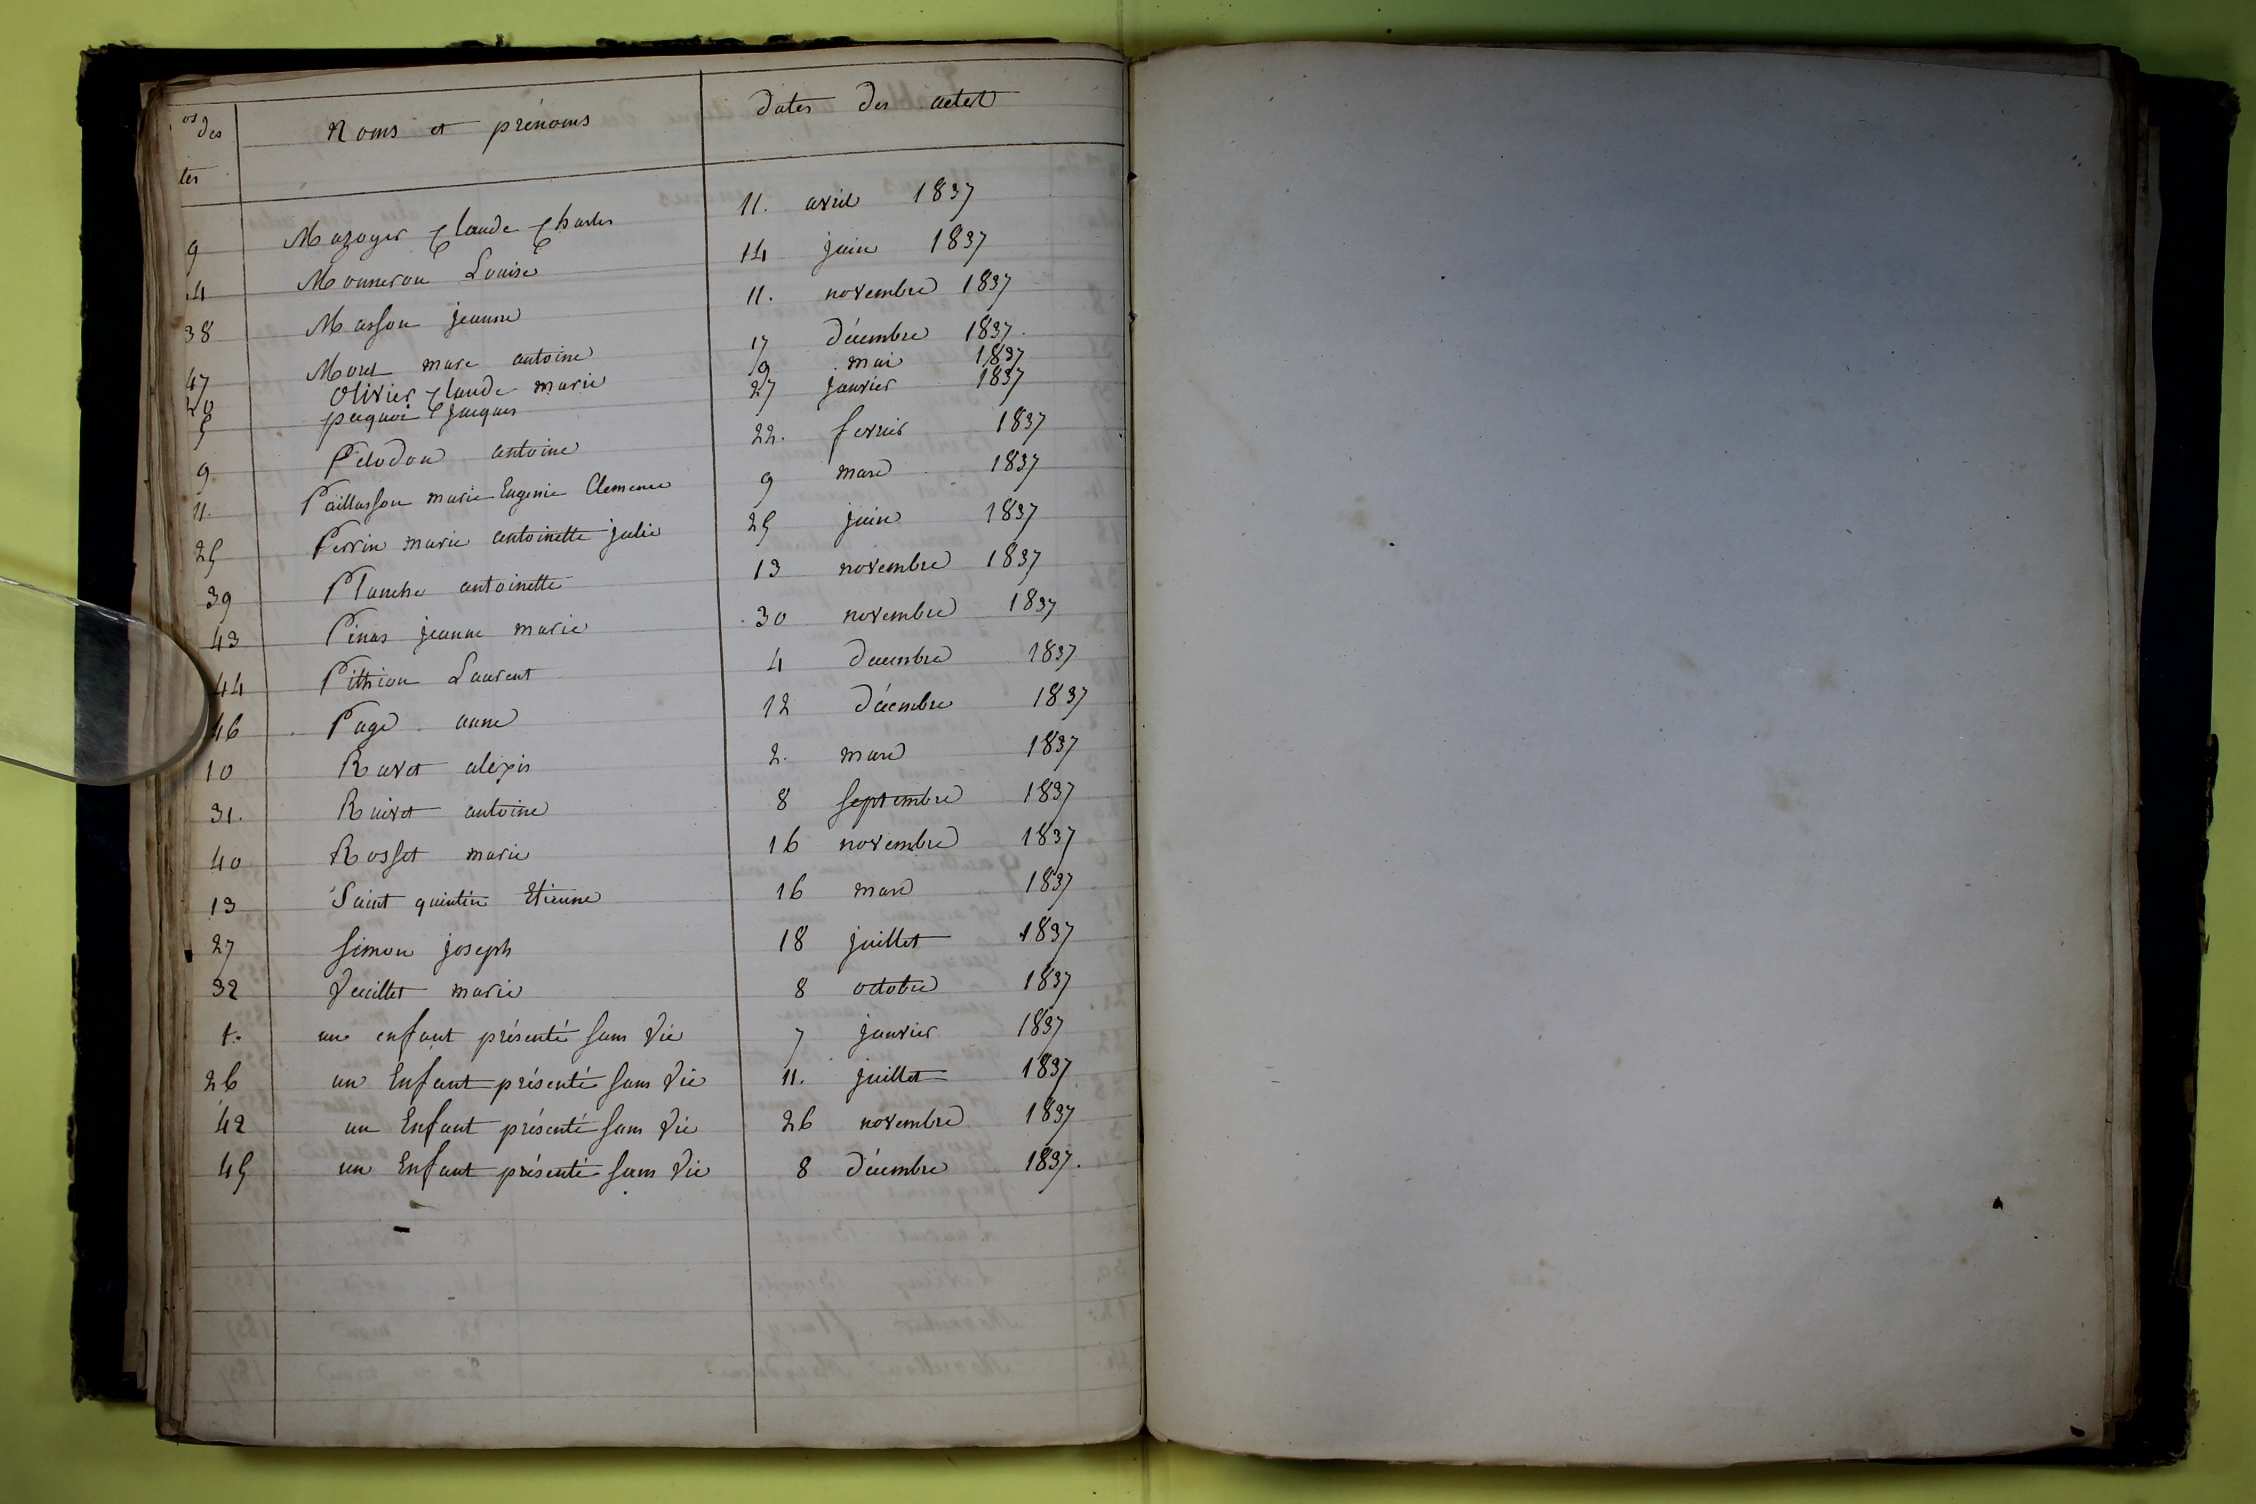 os des Noms et prénoms Dates des actes
tes
9 Mazoyer Claude Charles 11. avril 1837
4 Monneron Louise 14 juin 1837
38 Masson jeanne 11. novembre 1837
47 Morel marc antoine 17 décembre 1837.
20 Olivier Claude marie 9 mai 1837
5 pacquoi jacques 27 janvier 1837
9 Pelodon antoine 22. fevrier 1837
11. Paillasson marie Eugenie Clemence 9 mars 1837
25 Perrin marie antoinette julie 25 juin 1837
39 Planche antoinette 13 novembre 1837
43 Pinas jeanne marie 30 novembre 1837
44 Pithion Laurent 4 decembre 1837
46 Page anne 12 décembre 1837
10 Ravot alexis 2. mars 1837
31. Ruivot antoine 8 septembre 1837
40 Rosset marie 16 novembre 1837
13 Saint quintin Etienne 16 mars 1837
27 Simon joseph 18 juillet 1837
32 Veuillet marie 8 octobre 1837
1. un enfant présenté sans vie 7 janvier 1837
26 un Enfant présenté sans vie 11. juillet 1837
42 un Enfant présenté sans vie 26 novembre 1837
45 un Enfant présenté sans vie 8 décembre 1837.